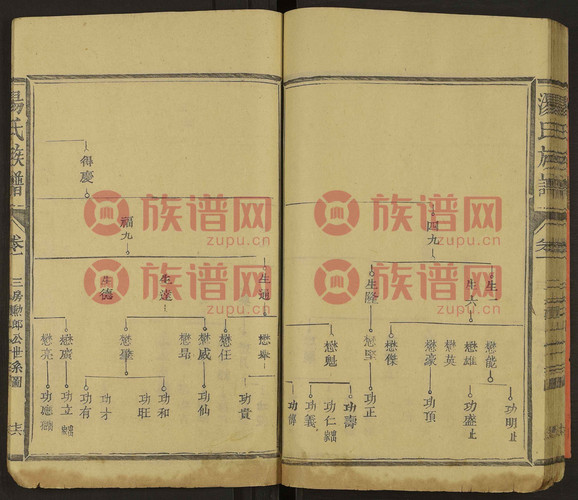 湯氏族譜
卷一
四九
生
生六
生隆
懋能
懋雄
懋英
懋豪
懋傑
懋堅
懋魁
功明止
功盛止
功頂
功正
功壽
功仁
功義
得慶
福九
生迴
生達
生德
懋任
懋威
懋昂
懋廣
懋亮
功貴
功仙
功和
功旺
功才
功有
功立
功應
湯氏族譜
卷一
三房勸郎公世系圖
族谱网
zupu.cn
族谱网
zupu.cn
族谱网
zupu.cn
族谱网
zupu.cn